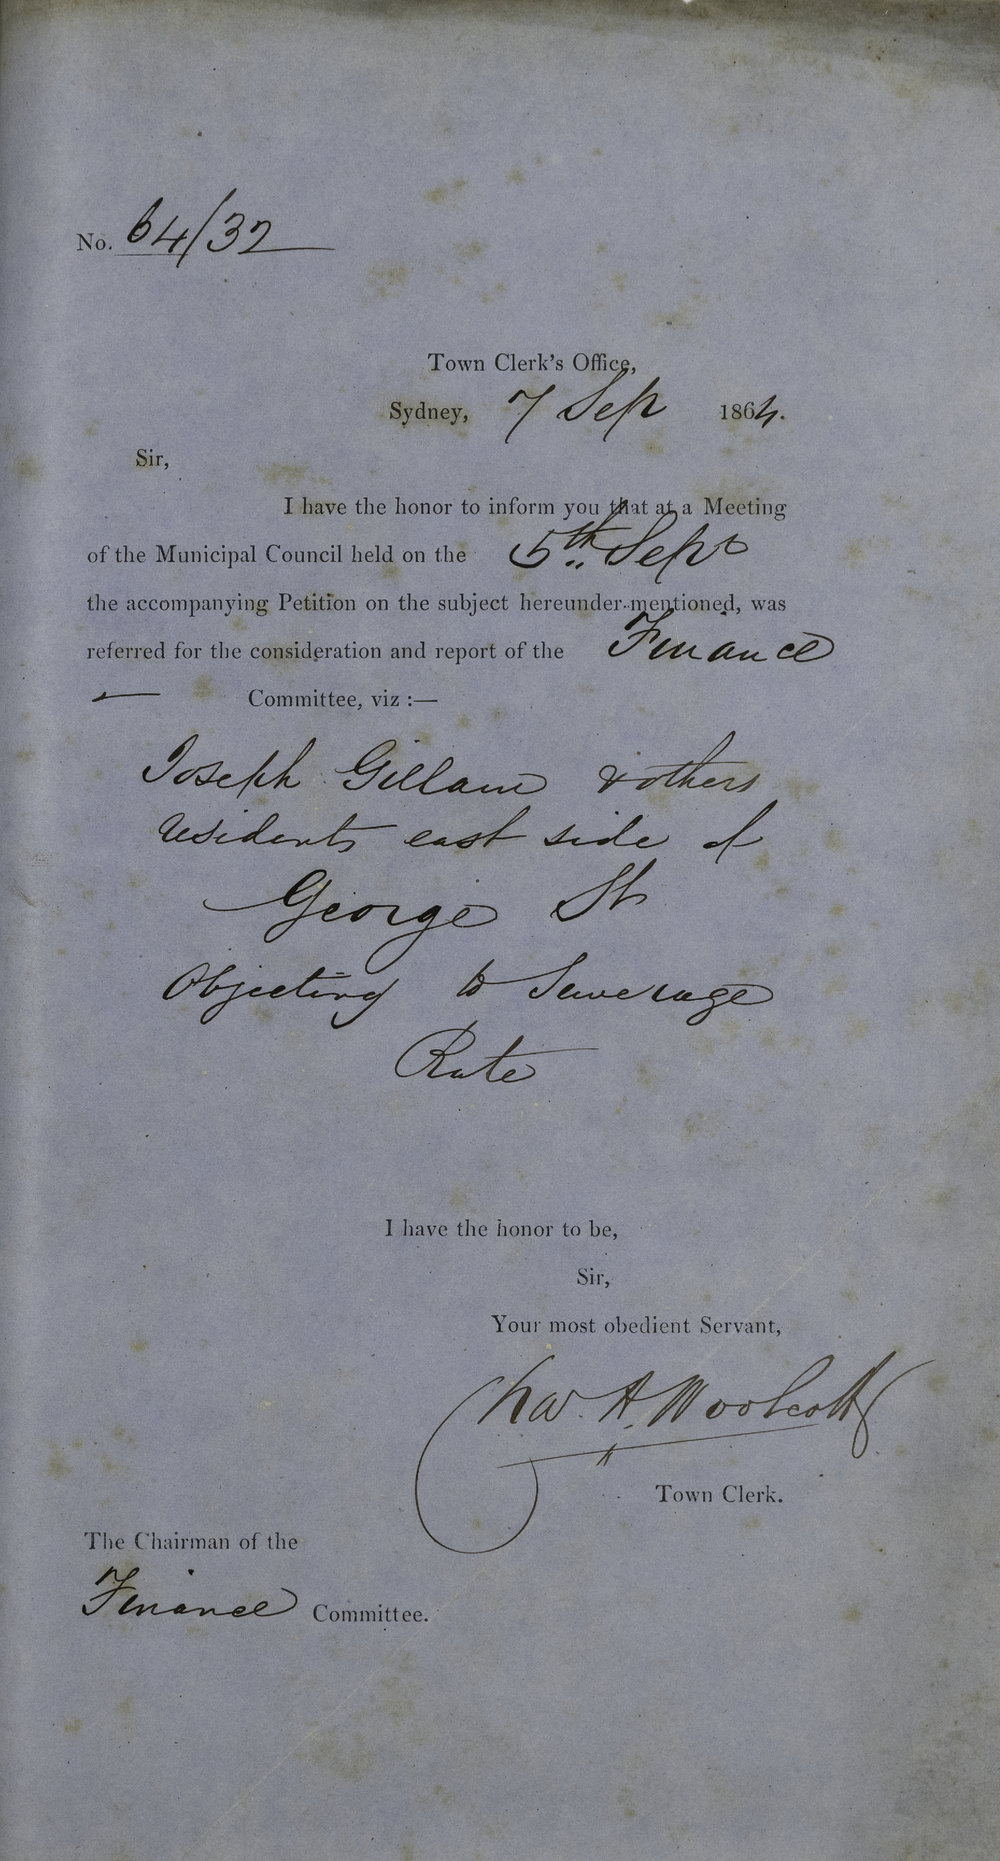 No. 64/32
Town Clerk's Office,
Sydney, 7 Sep 1864.
Sir,
I have the honor to inform you that at a Meeting
of the Municipal Council held on the 5th Sept
the accompanying Petition on the subject hereunder mentioned, was
referred for the consideration and report of the Finance
— Committee, viz :—
Joseph Gillam & others
residents east side of
George St
Objecting to Sewerage
Rate
I have the honor to be,
Sir,
Your most obedient Servant,
Chas. H. Woolcott
Town Clerk.
The Chairman of the
Finance Committee.